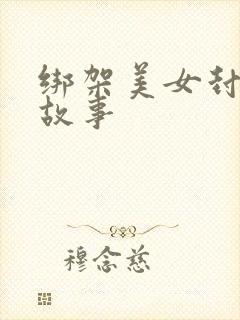 绑架美女封
故事
穆念慈